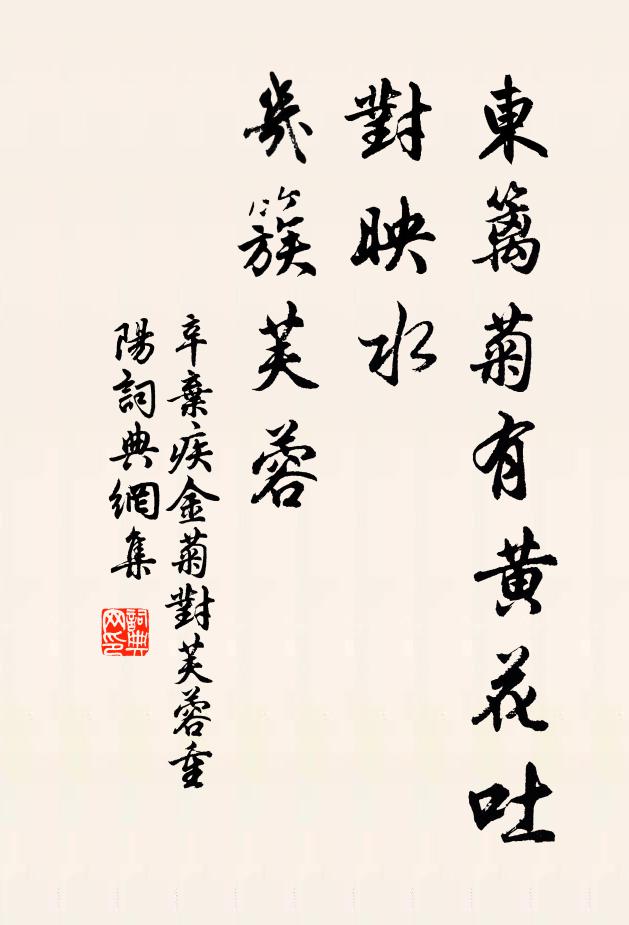 東篱菊有黄花吐
對映水
幾簇芙蓉
辛棄疾金菊對芙蓉重
陽詞典網集
詞典
网印